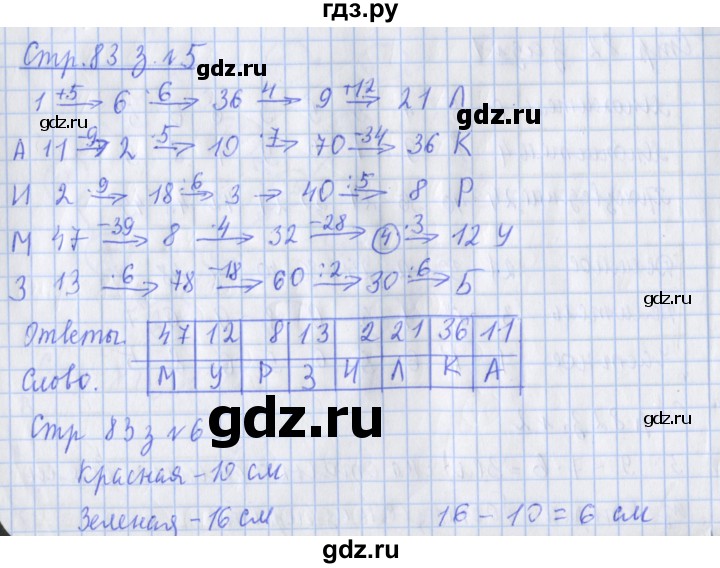 гдз.ру
Стр. 83 з. №5
gdz.ru
1 +5→ 6 ·6→ 36 :4→ 9 +12→ 21 Л
gdz.ru
gdz.ru
А 11 -9→ 2 ·5→ 10 ·7→ 70 -34→ 36 К
И 2 ·9→ 18 :6→ 3 → 40 :5→ 8 Р
М 47 -39→ 8 ·4→ 32 -28→ 4 ·3→ 12 У
З 13 ·6→ 78 -18→ 60 :2→ 30 :6→ Б
gdz.ru
Ответы. 47 12 8 13 2 21 36 11
Слово. М У Р З И Л К А
Стр 83 з №6
gdz.ru
gdz.ru
Красная - 10 см
Зеленая - 16 см 16 - 10 = 6 см
gdz.ru
gdz.ru